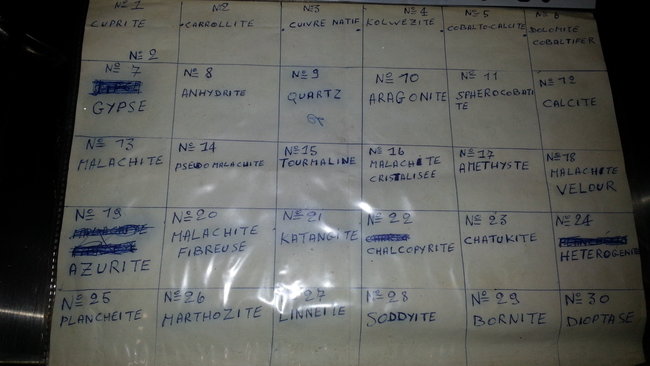 Nº 1
CUPRITE
Nº 2
Nº2
CARROLLITE
Nº3
CUIVRE NATIF
Nº 4
KOLWEZITE
Nº 5
COBALTO-CALCITE
Nº 6
DOLOMITE
COBALTIFER
Nº 7
GYPSE
Nº 8
ANHYDRITE
Nº 9
QUARTZ
Nº 10
ARAGONITE
Nº 11
SPHEROCOBATI
TE
Nº 12
CALCITE
Nº 13
MALACHITE
Nº 14
PSEUDO MALACHITE
Nº15
TOURMALINE
Nº 16
MALACHITE
CRISTALISEE
Nº 17
AMETHYSTE
Nº18
MALACHITE
VELOUR
Nº 19
AZURITE
Nº 20
MALACHITE
FIBREUSE
Nº 21
KATANGITE
Nº 22
CHALCOPYRITE
Nº 23
CHATUKITE
Nº 24
HETEROGENITE
Nº 25
PLANCHEITE
Nº 26
MARTHOZITE
27
LINNEITE
Nº 28
SODDYITE
Nº 29
BORNITE
Nº 30
DIOPTASE